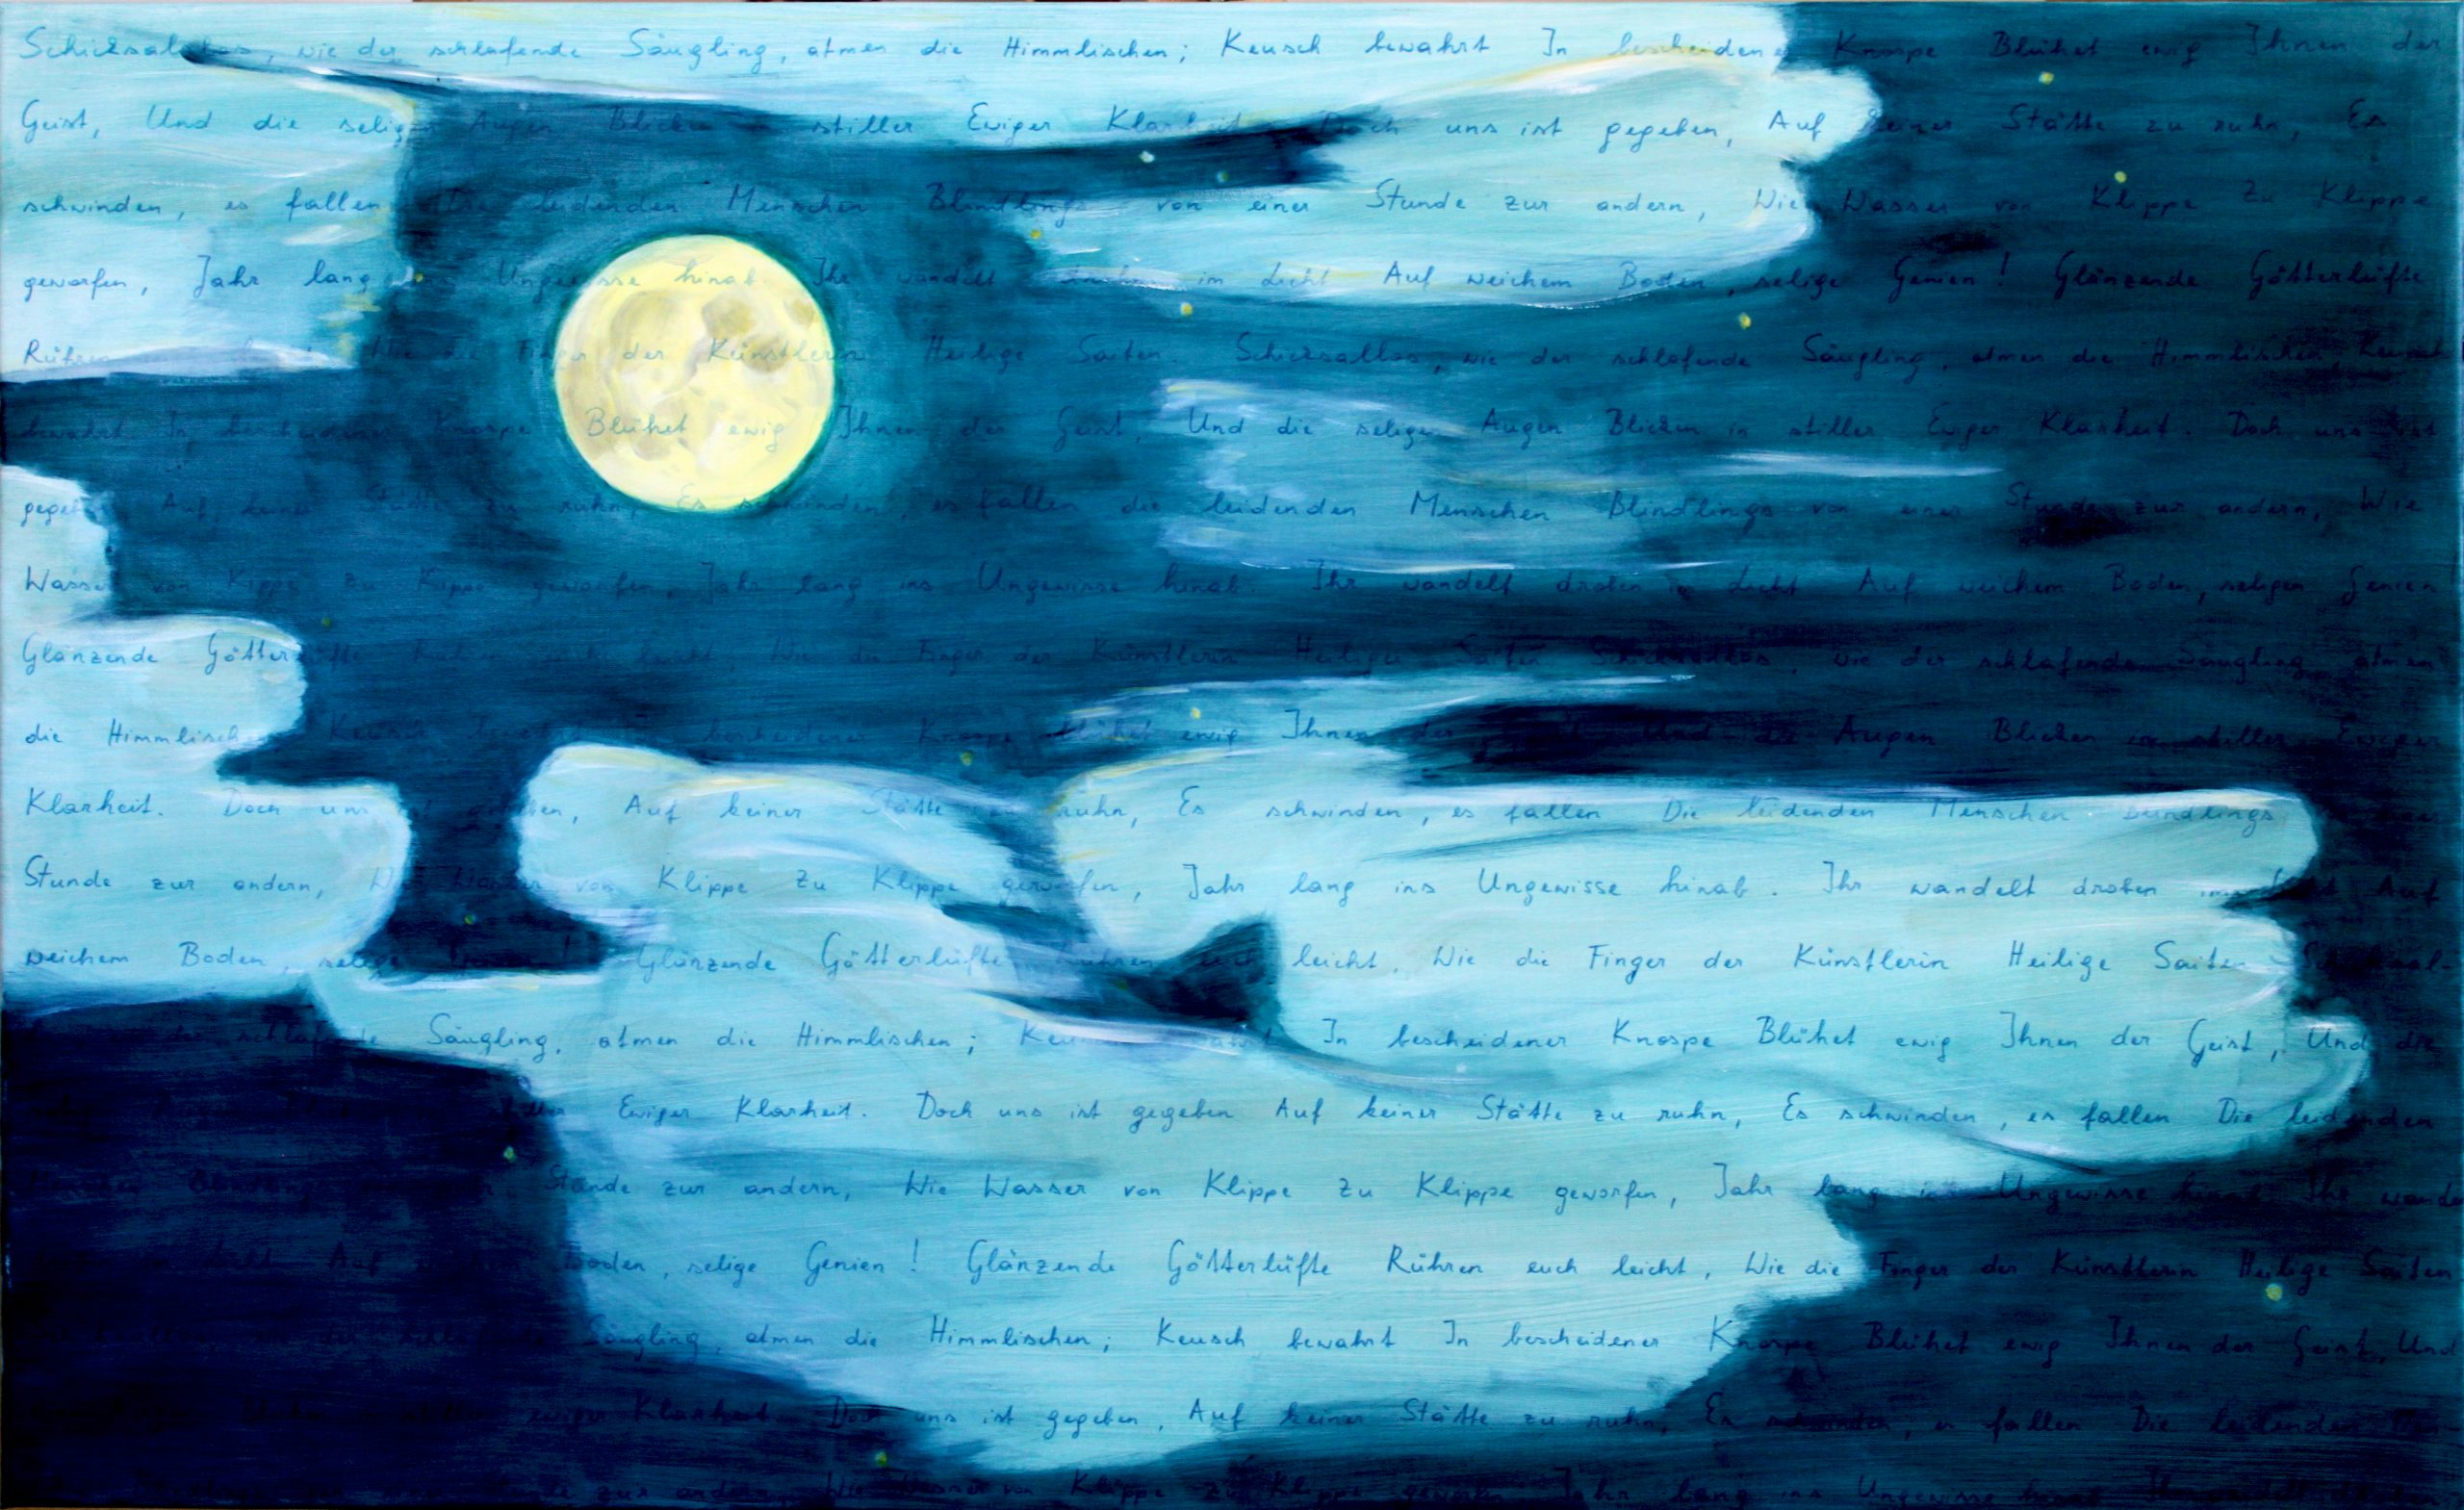 Schicksallos, wie der schlafende Säugling, atmen die Himmlischen; Keusch bewahrt In bescheidener Knospe Blühet ewig Ihnen der
Geist, Und die seligen Augen Blicken in stiller Ewiger Klarheit. Doch uns ist gegeben, Auf keiner Stätte zu ruhn, Es
schwinden, es fallen Die leidenden Menschen Blindlings von einer Stunde zur andern, Wie Wasser von Klippe zu Klippe
geworfen, Jahr lang ins Ungewisse hinab. Ihr wandelt droben im Licht Auf weichem Boden, selige Genien! Glänzende Götterlüfte
Rühren Wie die Finger der Künstlerin Heilige Saiten Schicksallos, wie der schlafende Säugling, atmen die Himmlischen, Keusch
bewahrt In bescheidener Knospe Blühet ewig Ihnen der Geist, Und die seligen Augen Blicken in stiller Ewger Klarheit. Doch uns ist
gegeben, Auf keiner Stätte zu ruhn, Es schwinden, es fallen die leidenden Menschen Blindlings von einer Stunde zur andern, Wie
Wasser von Kippe zu Kippe geworfen, Jahr lang ins Ungewisse hinab. Ihr wandelt droben im Licht Auf weichem Boden, seligen Genien
Glänzende Götterlüfte Rühren euch leicht Wie die Finger der Künstlerin Heilige Saiten Schicksallos, wie der schlafende Säugling atmen
die Himmlischen Keusch bescheidener Knospe Blühet ewig Ihnen der Und die Augen Blicken in stiller Ewiger
Klarheit. Doch uns ist gegeben, Auf keiner Stätte zu ruhn, Es schwinden, es fallen Die leidenden Menschen blindlings
Stunde zur andern, Wie Wasser von Klippe zu Klippe geworfen, Jahr lang ins Ungewisse hinab. Ihr wandelt droben im Licht Auf
weichem Boden, selige Genien! Glänzende Götterlüfte Rühren euch leicht, Wie die Finger der Künstlerin Heilige Saiten Schicksal-
der schlafende Säugling, atmen die Himmlischen; Keusch bewahrt In bescheidener Knospe Blühet ewig Ihnen der Geist, Und die
stiller Ewiger Klarheit. Doch uns ist gegeben Auf keiner Stätte zu ruhn, Es schwinden, es fallen Die leidenden
Menschen Blindlings Stunde zur andern, Wie Wasser von Klippe zu Klippe geworfen, Jahr lang ins Ungewisse hinab Ihr wand
Licht Auf Boden, selige Genien! Glänzende Götterlüfte Rühren euch leicht, Wie die Finger der Künstlerin Heilige Saiten
der schlafende Säugling, atmen die Himmlischen; Keusch bewahrt In bescheidener Knospe Blühet ewig Ihnen der Geist, Und
ewiger Klarheit. Doch uns ist gegeben, Auf keiner Stätte zu ruhn, Es schwinden, es fallen Die leidenden
zur andern, Wie Wasser von Klippe zu Klippe geworfen Jahr lang ins Ungewisse hinab